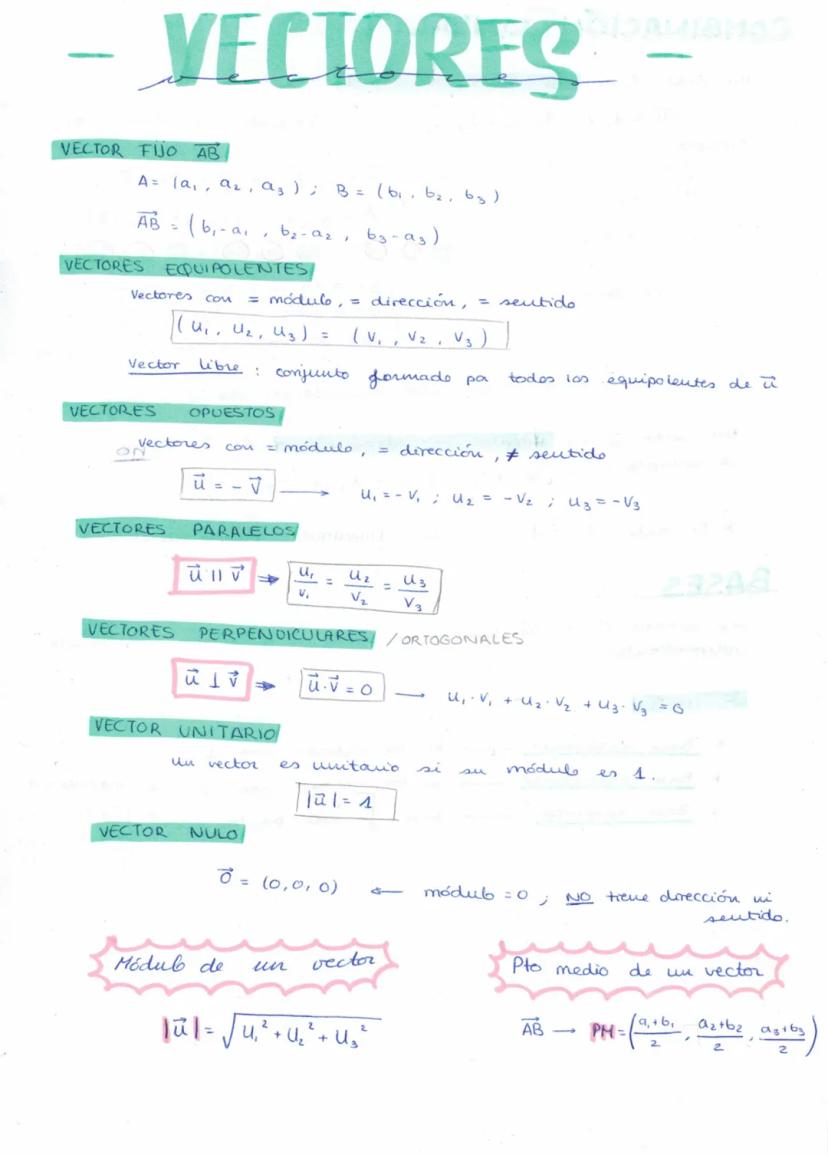 - VECTORES -
vectores
VECTOR FIJO A⃗B⃗
A = (a₁, a₂, a₃) ; B = (b₁, b₂, b₃)
A⃗B⃗ = (b₁-a₁, b₂-a₂, b₃-a₃)
VECTORES EQUIPOLENTES
Vectores con = módulo, = dirección, = sentido
(u₁, u₂, u₃) = (v₁, v₂, v₃)
Vector libre : conjunto formado por todos los equipolentes de u⃗
VECTORES OPUESTOS
Vectores con = módulo, = dirección, ≠ sentido
u⃗ = - v⃗ → u₁ = -v₁ ; u₂ = -v₂ ; u₃ = -v₃
VECTORES PARALELOS
u⃗ || v⃗ ⇒ u₁/v₁ = u₂/v₂ = u₃/v₃
VECTORES PERPENDICULARES / ORTOGONALES
u⃗ ⊥ v⃗ ⇒ u⃗·v⃗ = 0 → u₁·v₁ + u₂·v₂ + u₃·v₃ = 0
VECTOR UNITARIO
Un vector es unitario si su módulo es 1.
|u⃗| = 1
VECTOR NULO
0⃗ = (0, 0, 0) ← módulo = 0 ; NO tiene dirección ni
sentido.
Módulo de un vector
|u⃗| = √(u₁² + u₂² + u₃²)
Pto medio de un vector
A⃗B⃗ → PM = (a₁+b₁/2, a₂+b₂/2, a₃+b₃/2)